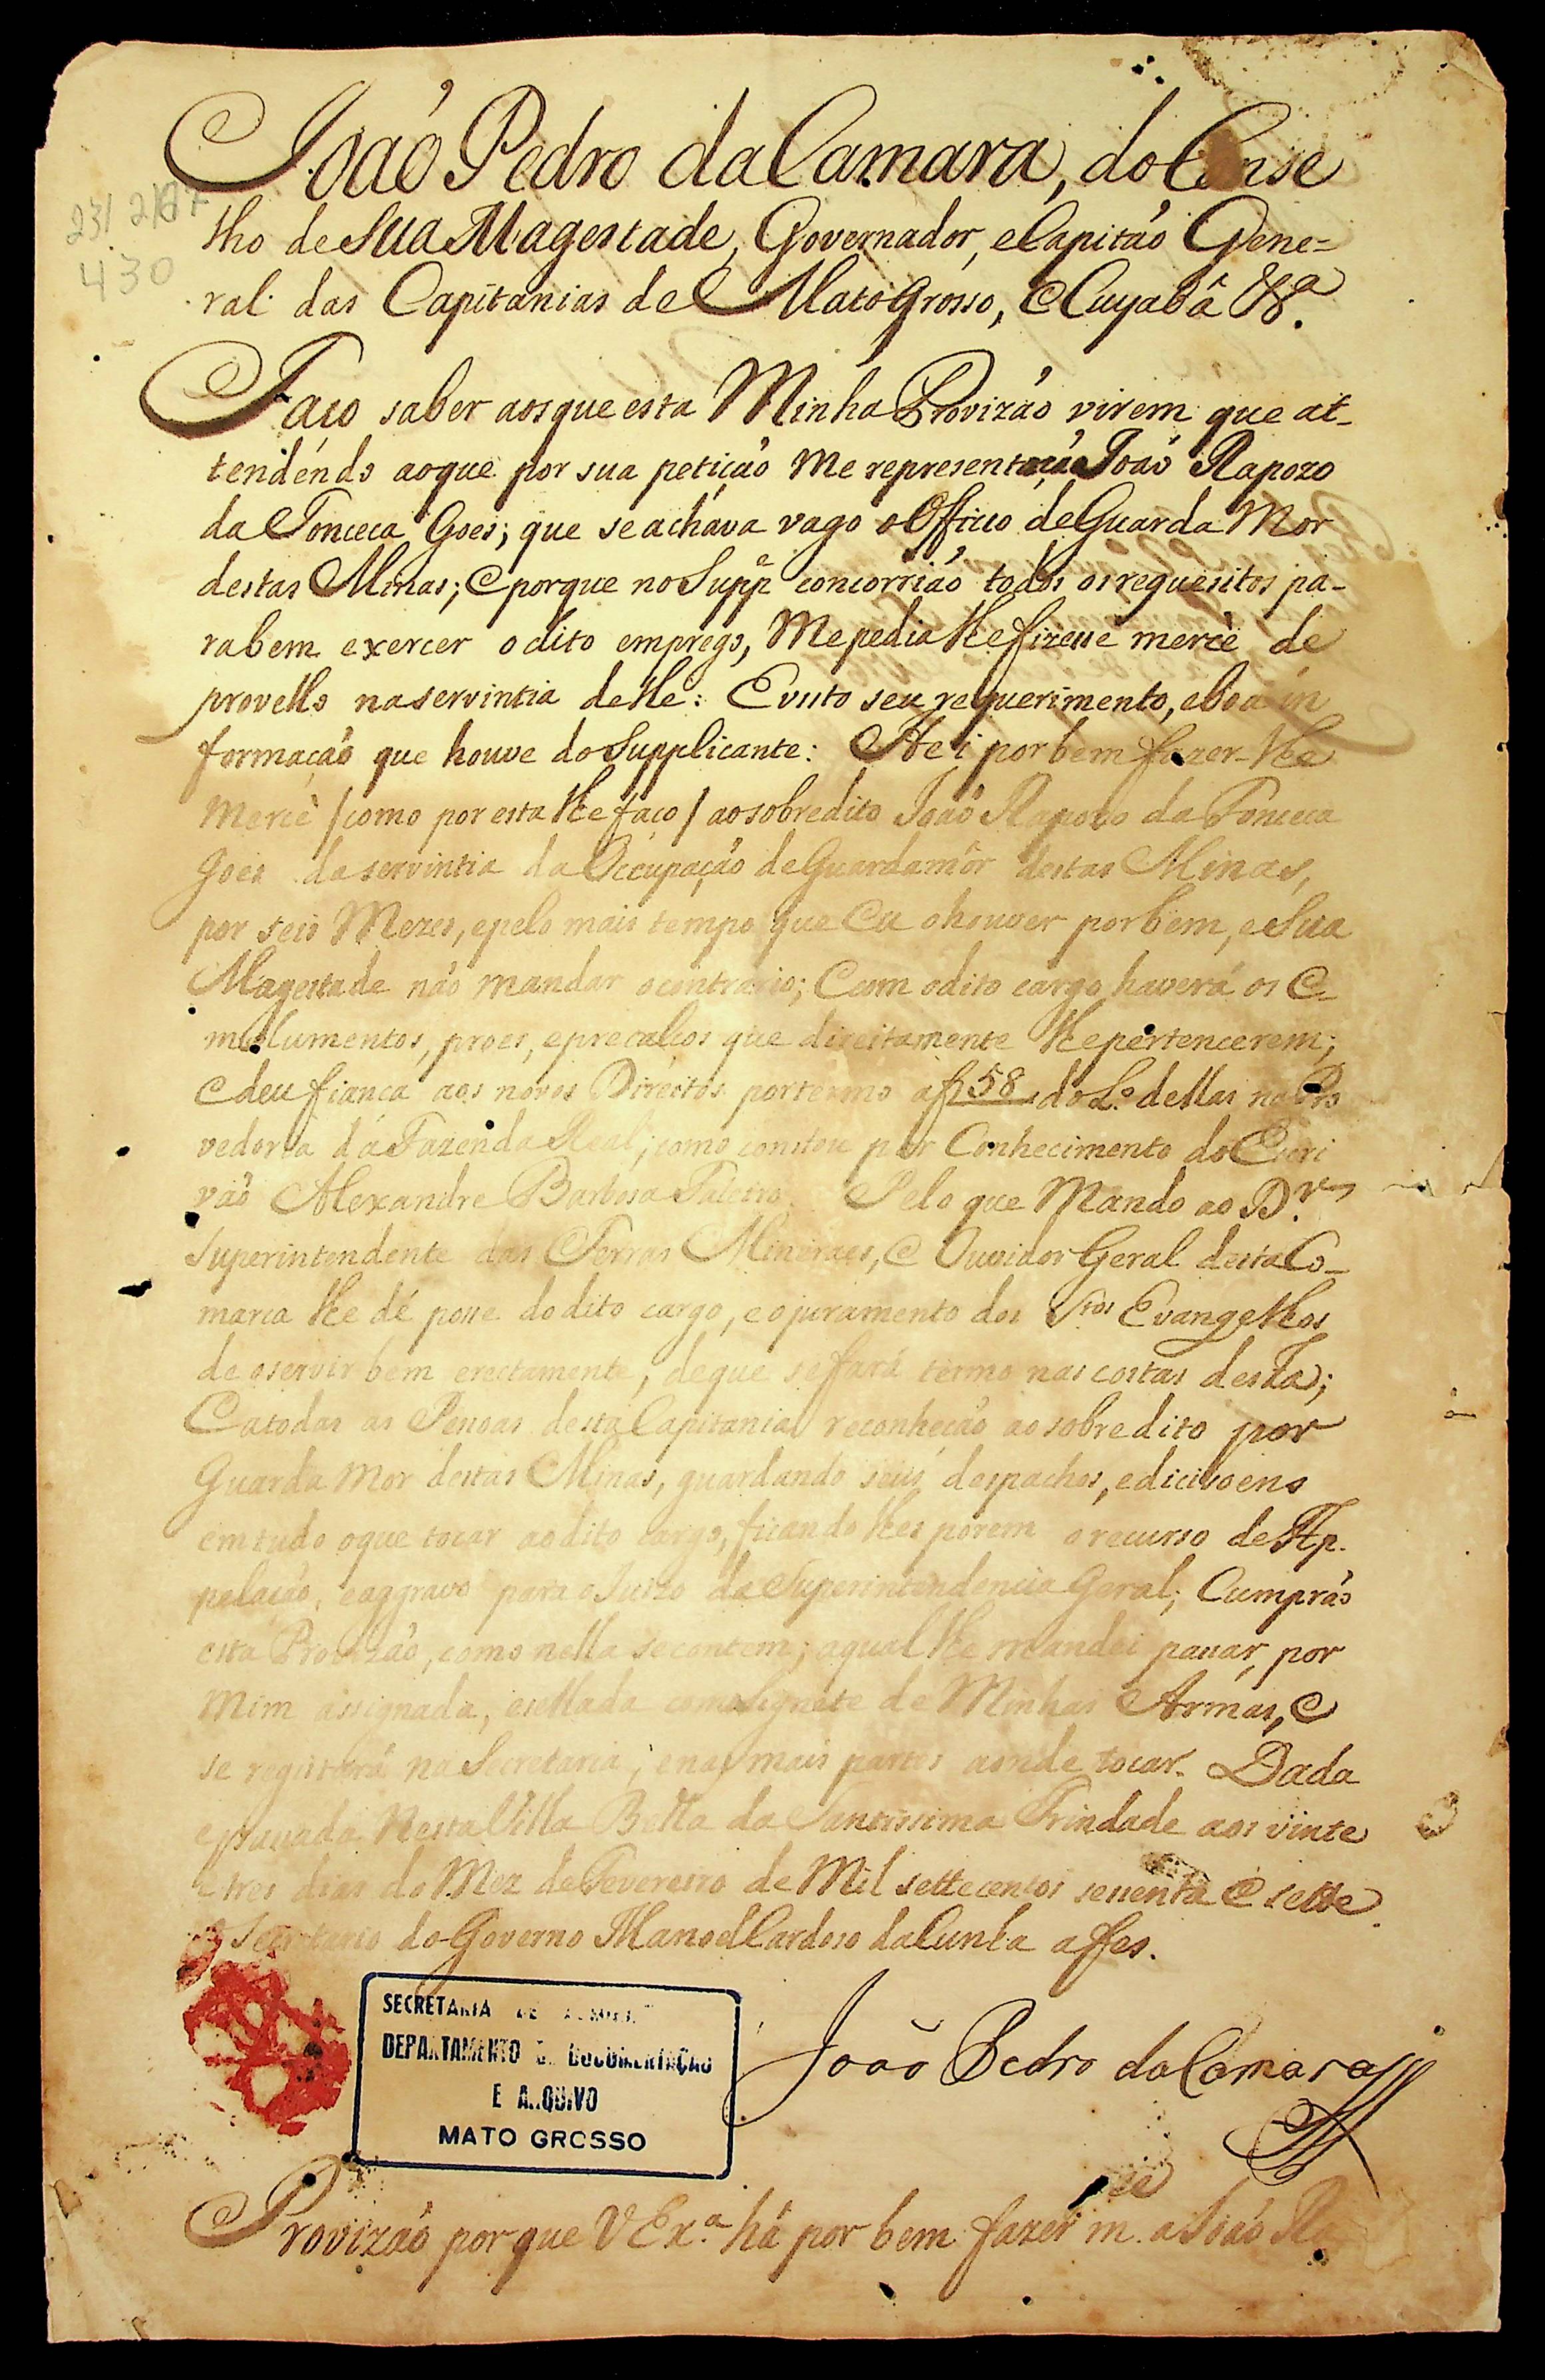 João Pedro da Camara, do Conse
lho de Sua Magestade, Governador, e Capitão Gene=
ral das Capitanias de Mato Grosso, e Cuyabá &ª.
Faço saber aos que esta Minha Provizão virem que at-
tendendo ao que por sua petição Me representou João Rapozo
da Fonceca Goes; que se achava vago o Officio de Guarda Mor
destas Minas; e porque no Suppe concorrião todos os requesitos pa-
ra bem exercer o dito emprego, Me pedia lhe fizesse mercè de
provello na servintia delle: E visto seu requerimento, e boa in
formação que houve do Supplicante: Hei por bem fazer-lhe
Mercè /como por esta lhe faço/ ao sobredito João Rapozo da Fonceca
Goes da servintia da Occupação de Guarda mór destas Minas,
por seis Mezes, e pelo mais tempo que Eu o houver por bem, e Sua
Magestade não mandar o contrario; E com o dito cargo haverá os E-
molumentos, proes, e precalços que direitamente lhe pertencerem;
e deu fiança aos novos Direitos por termo a f 58 do Lo. dellas na Pro
vedoria da Fazenda Real; como constou por Conhecimento do Escri
vão Alexandre Barbosa. Pelo que Mando ao Dr.
Superintendente das Terras Mineraes, e Ouvidor Geral desta Co-
marca lhe dé posse do dito cargo, e o juramento dos Stos Evangelhos
de o servir bem e rectamente, de que se fará termo nas costas desta;
E a todas as Pessoas desta Capitania reconheção ao sobredito por
Guarda Mor destas Minas, guardando seus despachos, e dicisoens
em tudo o que tocar ao dito cargo, ficando lhes porem o recurso de Ap-
pelação, e aggravo para o Juizo da Superintendencia Geral; Cumprão
esta Provizão, como nella se contem; a qual lhe mandei passar, por
Mim assignada, e sellada com o Signete de Minhas Armas, e
se registará na Secretaria, e nas mais partes aonde tocar. Dada
e passada Nesta Villa Bella da Santissima Trindade aos vinte
e tres dias do Mez de Fevereiro de Mil settecentos sessenta e sette
O Secretario do Governo Manoel Cardoso da Cunha a fes.
João Pedro da Camara
Provizão por que V Exª. há por bem fazer m.ce a João Ra
231 2187
430
SECRETARIA DE
DEPARTAMENTO DE DOCUMENTAÇÃO
E ARQUIVO
MATO GROSSO